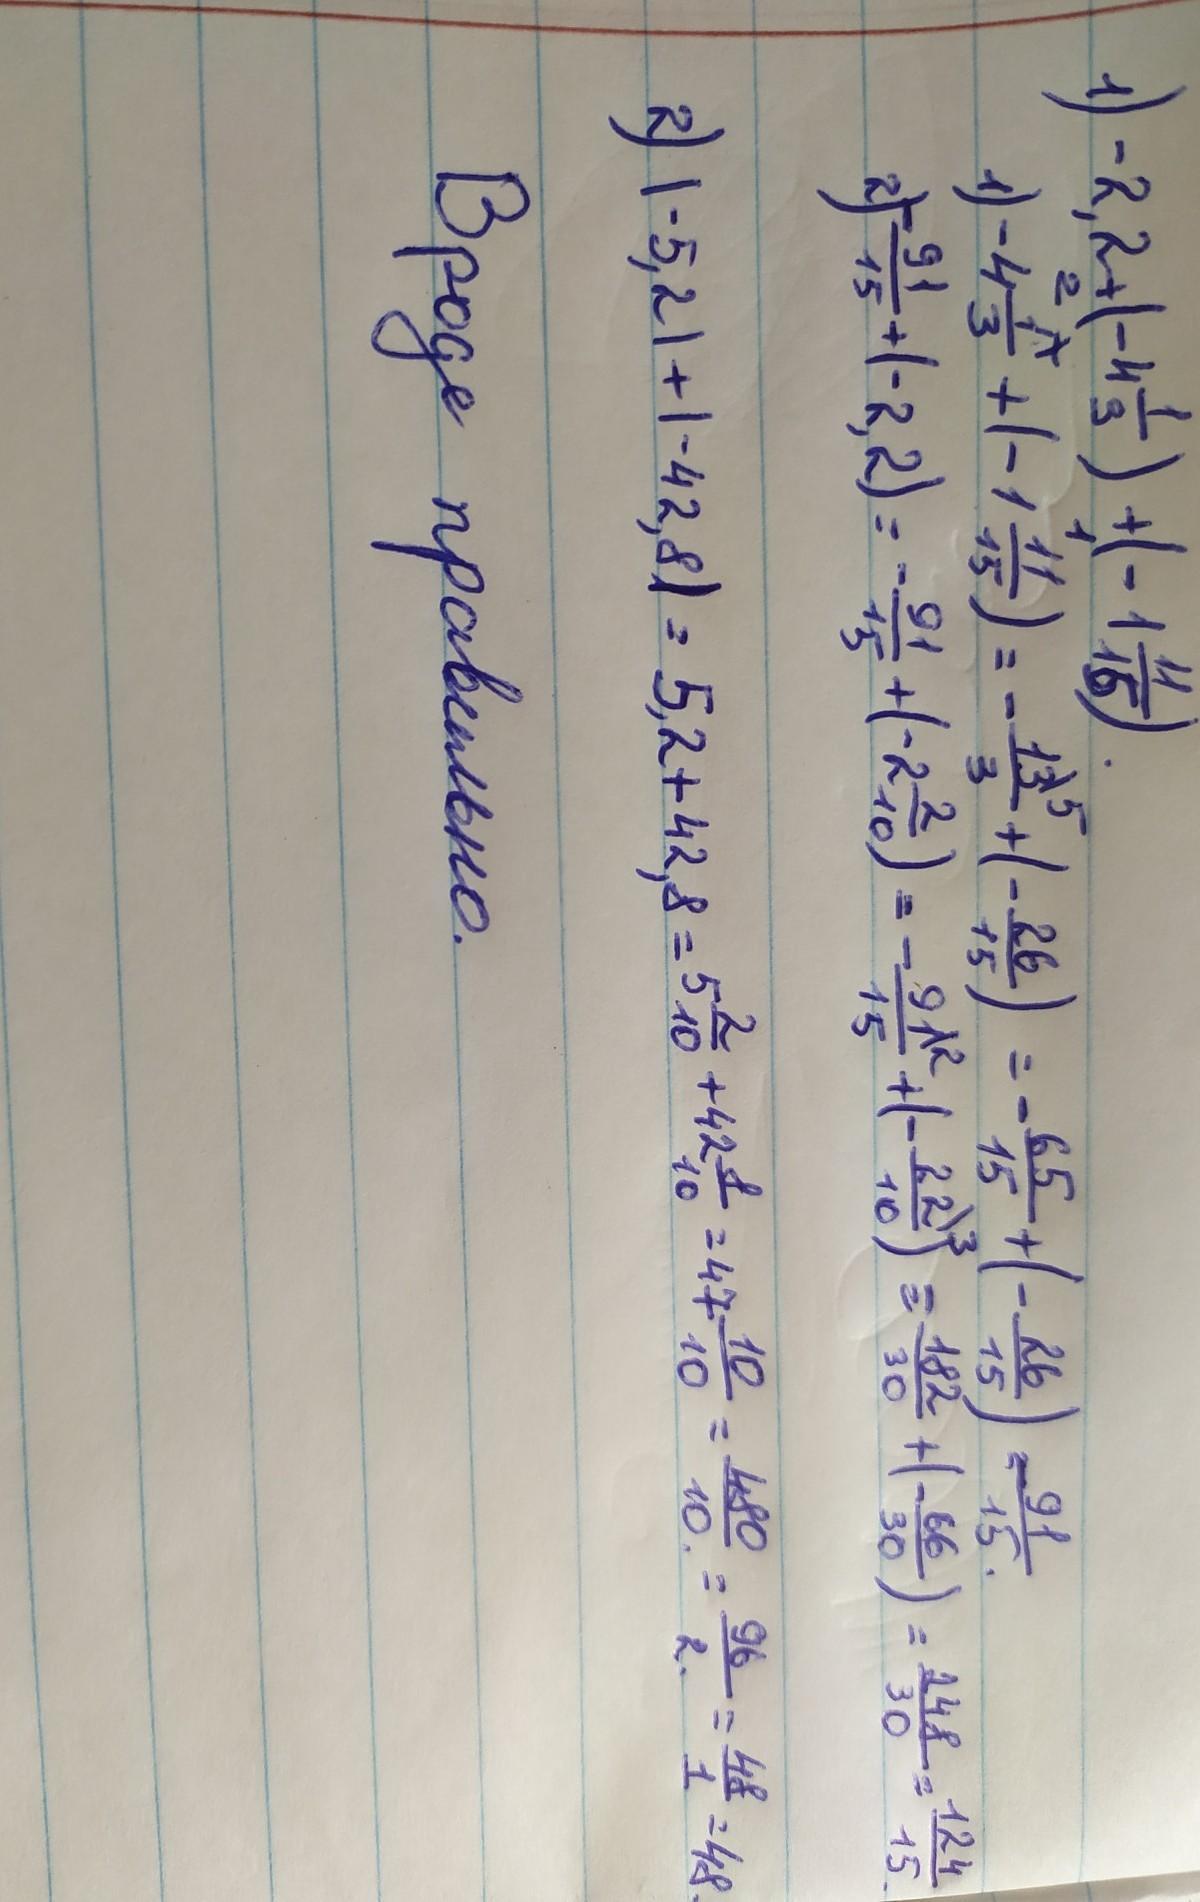 1) -2,2+(-4 1/3) + (-1 11/15).
2 1
1) -4 1/3 + (-1 11/15) = -13/3\5 + (-26/15) = -65/15 + (-26/15) = -91/15.
2) -91/15 + (-2,2) = -91/15 + (-2 2/10) = -91/15\2 + (-22/10\3) = -182/30 + (-66/30) = 248/30 = 124/15.
2) |-5,2|+|-42,8| = 5,2+42,8 = 5 2/10 + 42 8/10 = 47 10/10 = 480/10. = 96/2. = 48/1 = 48.
Вроде правильно.